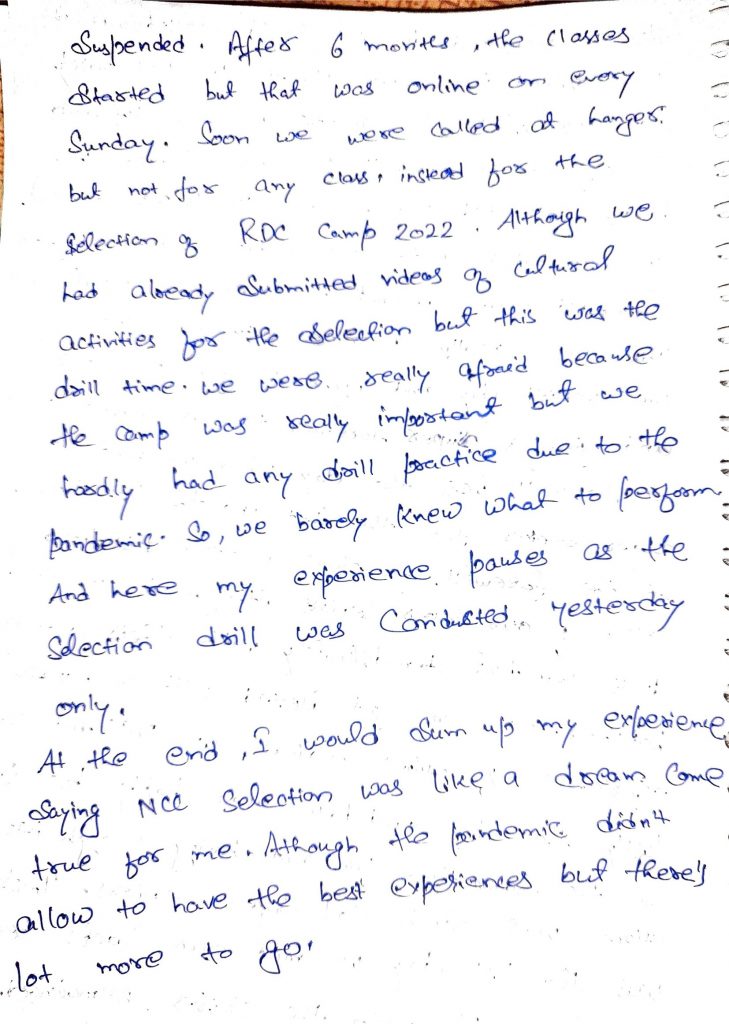 Suspended. After 6 months, the classes
Started but that was online on every
Sunday. Soon we were called at hanger.
but not for any class, instead for the
Selection of RDC Camp 2022. Although we
had already Submitted videos of cultural
activities for the Selection but this was the
drill time. we were really afraid because
the camp was really important but we
hardly had any drill practice due to the
pandemic. So, we barely knew what to perform
And here my experience pauses as the
Selection drill was Conducted yesterday
only.
At the end, I would Sum up my experience
Saying NCC Selection was like a dream Come
true for me. Athough the pandemic didn't
allow to have the best experiences but there's
lot more to go.